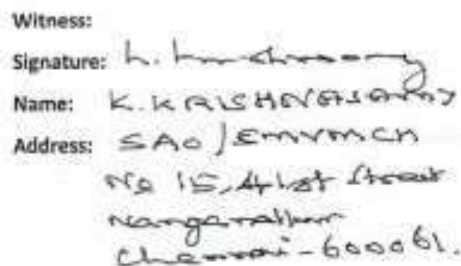 Witness:
Signature:
Name: K. KRISHNASAMY
Address: SAO/EMVMCH
No 15, 41st Street
Nanganallur
Chennai - 600061.